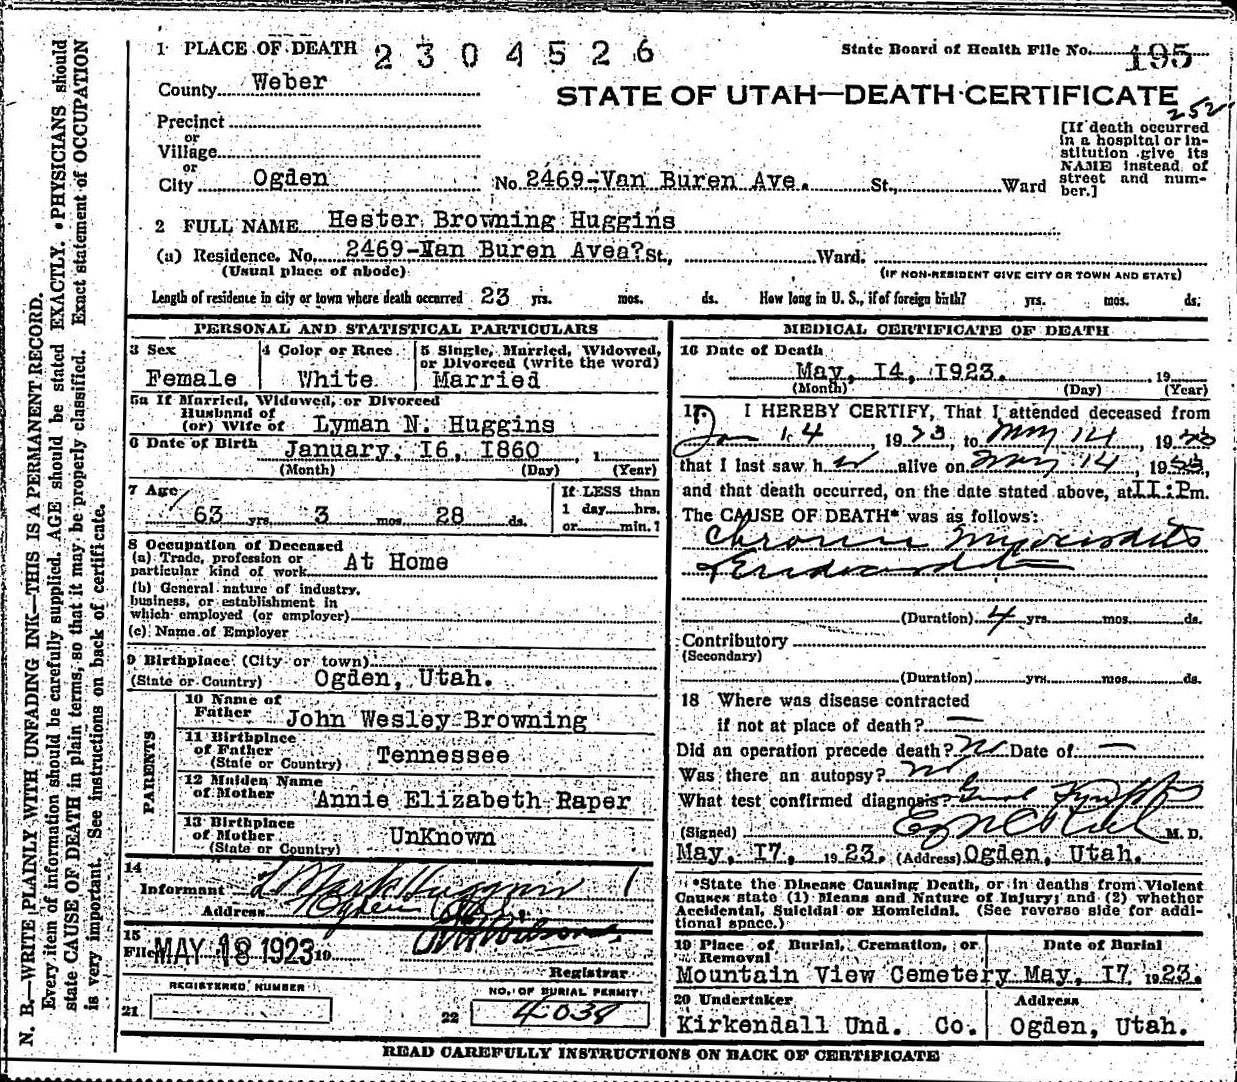 1 PLACE OF DEATH 2304526
State Board of Health File No. 195
County Weber
STATE OF UTAH—DEATH CERTIFICATE
252
Precinct
or
Village
or
City Ogden No. 2469-Van Buren Ave. St., Ward
[If death occurred
in a hospital or in-
stitution give its
NAME instead of
street and num-
ber.]
2 FULL NAME Hester Browning Huggins
(a) Residence. No. 2469-Van Buren Avea? St., Ward.
(Usual place of abode)
(IF NON-RESIDENT GIVE CITY OR TOWN AND STATE)
Length of residence in city or town where death occurred 23 yrs. mos. ds. How long in U. S., if of foreign birth? yrs. mos. ds.
PERSONAL AND STATISTICAL PARTICULARS
3 Sex
Female
4 Color or Race
White
5 Single, Married, Widowed,
or Divorced (write the word)
Married
5a If Married, Widowed, or Divorced
Husband of
(or) Wife of Lyman N. Huggins
6 Date of Birth January, 16, 1860, 1
(Month) (Day) (Year)
7 Age
63 yrs. 3 mos. 28 ds.
If LESS than
1 day hrs.
or min.?
8 Occupation of Deceased
(a) Trade, profession or
particular kind of work At Home
(b) General nature of industry,
business, or establishment in
which employed (or employer)
(c) Name of Employer
9 Birthplace (City or town)
(State or Country) Ogden, Utah.
PARENTS
10 Name of
Father John Wesley Browning
11 Birthplace
of Father
(State or Country) Tennessee
12 Maiden Name
of Mother Annie Elizabeth Raper
13 Birthplace
of Mother
(State or Country) UnKnown
14
Informant L Mark Huggins
Address Ogden Utah
15
Filed MAY 18 1923 19
Registrar
REGISTERED NUMBER
21
NO. OF BURIAL PERMIT
22 4038
MEDICAL CERTIFICATE OF DEATH
16 Date of Death
May, 14, 1923. 19
(Month) (Day) (Year)
17. I HEREBY CERTIFY, That I attended deceased from
Jan 14, 1923 to May 14, 1923
that I last saw her alive on May 14, 1923,
and that death occurred, on the date stated above, at 11:Pm.
The CAUSE OF DEATH* was as follows:
Chronic Myocarditis
+ Endocarditis
(Duration) 4 yrs. mos. ds.
Contributory
(Secondary)
(Duration) yrs. mos. ds.
18 Where was disease contracted
if not at place of death? —
Did an operation precede death? No Date of —
Was there an autopsy? No
What test confirmed diagnosis?
(Signed) M. D.
May, 17, 1923. (Address) Ogden, Utah.
*State the Disease Causing Death, or in deaths from Violent
Causes state (1) Means and Nature of Injury; and (2) whether
Accidental, Suicidal or Homicidal. (See reverse side for addi-
tional space.)
19 Place of Burial, Cremation, or
Removal
Mountain View Cemetery
Date of Burial
May, 17 1923.
20 Undertaker
Kirkendall Und. Co.
Address
Ogden, Utah.
READ CAREFULLY INSTRUCTIONS ON BACK OF CERTIFICATE
N. B.—WRITE PLAINLY WITH UNFADING INK—THIS IS A PERMANENT RECORD.
Every item of information should be carefully supplied. AGE should be stated EXACTLY. PHYSICIANS should
state CAUSE OF DEATH in plain terms, so that it may be properly classified. Exact statement of OCCUPATION
is very important. See instructions on back of certificate.